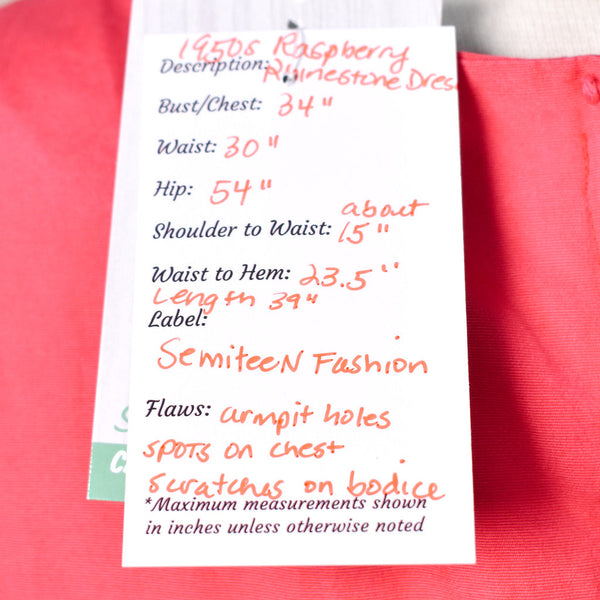 1950s Raspberry
Description: Rhinestone Dress
Bust/Chest: 34"
Waist: 30"
Hip: 54"
about
Shoulder to Waist: 15"
Waist to Hem: 23.5"
Length 39"
Label:
SemiteeN Fashion
Flaws: armpit holes
spots on chest
scratches on bodice
*Maximum measurements shown
in inches unless otherwise noted